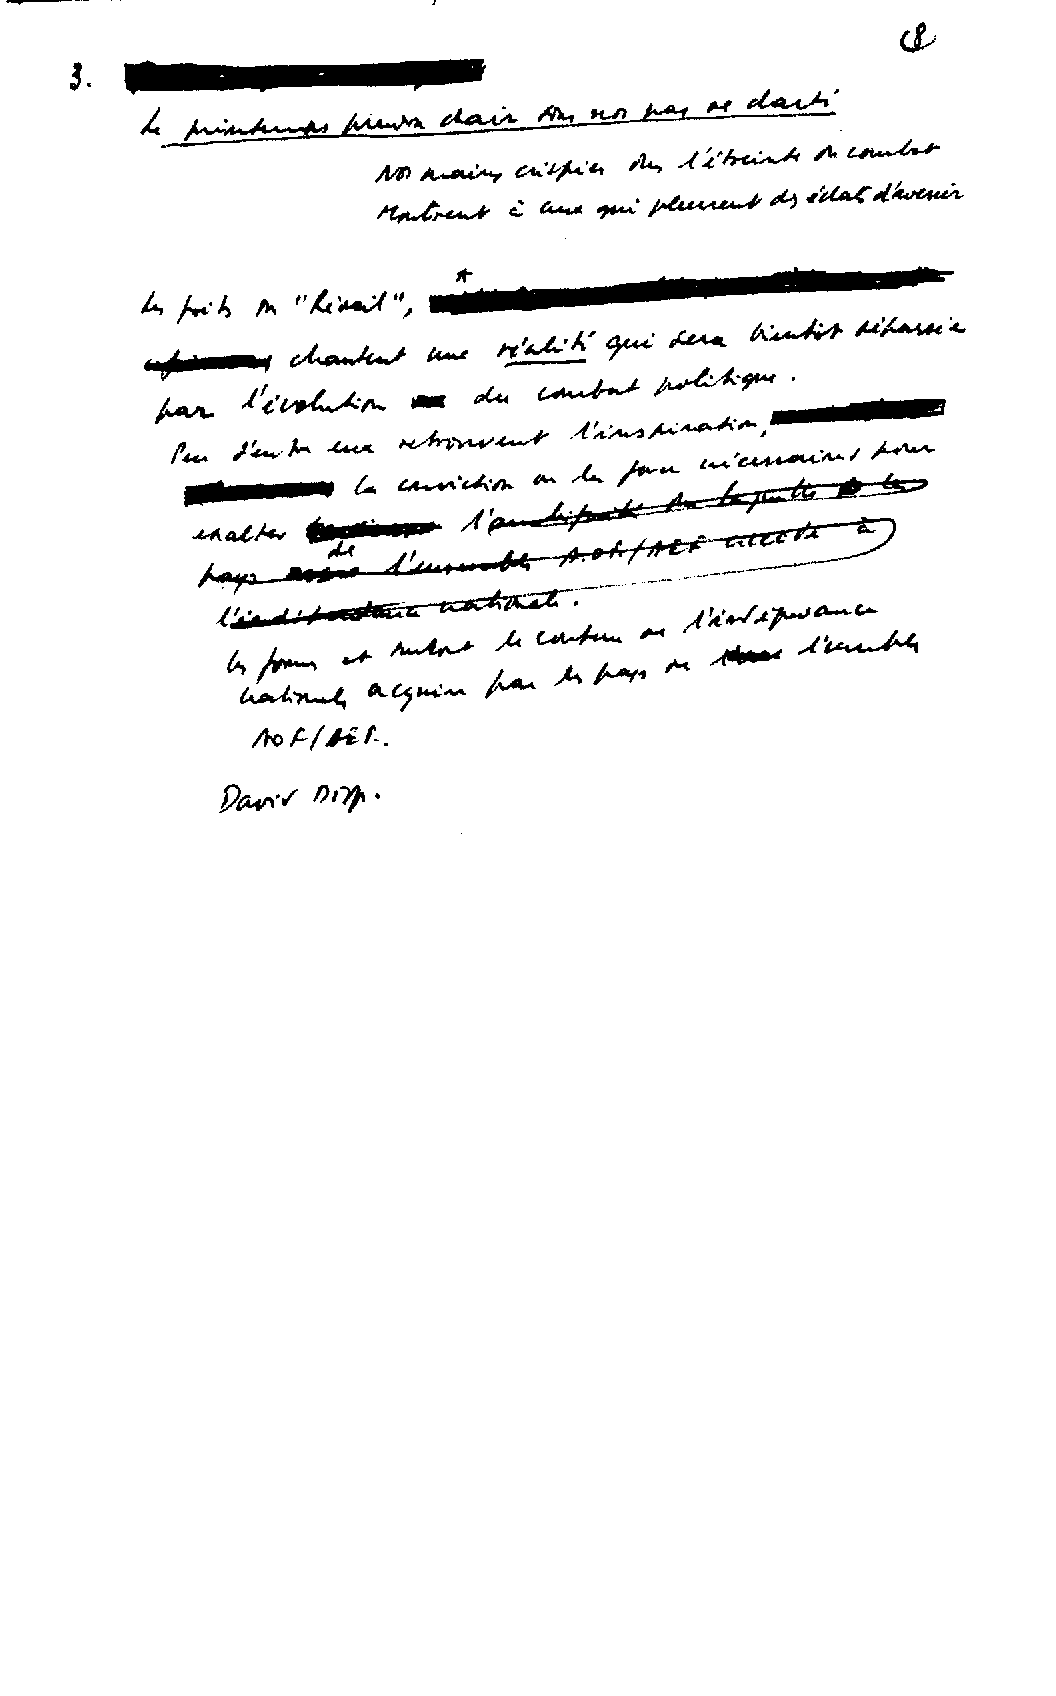 8
3.
Le printemps prendra chair sous nos pas de clarté
Nos mains crispées dans l'étreinte du combat
Montrent à ceux qui pleurent des éclats d'avenir
Les poètes du "Réveil",
chantent une réalité qui sera bientôt dépassée
par l'évolution du combat politique.
Peu d'entre eux retrouvent l'inspiration,
la conviction ou la force nécessaires pour
exalter l'
pays de l'ensemble AOF/AEF accède à
l'indépendance nationale.
les formes et surtout le contenu de l'indépendance
nationale acquise par les pays de l'ensemble
AOF/AEF.
David Diop.